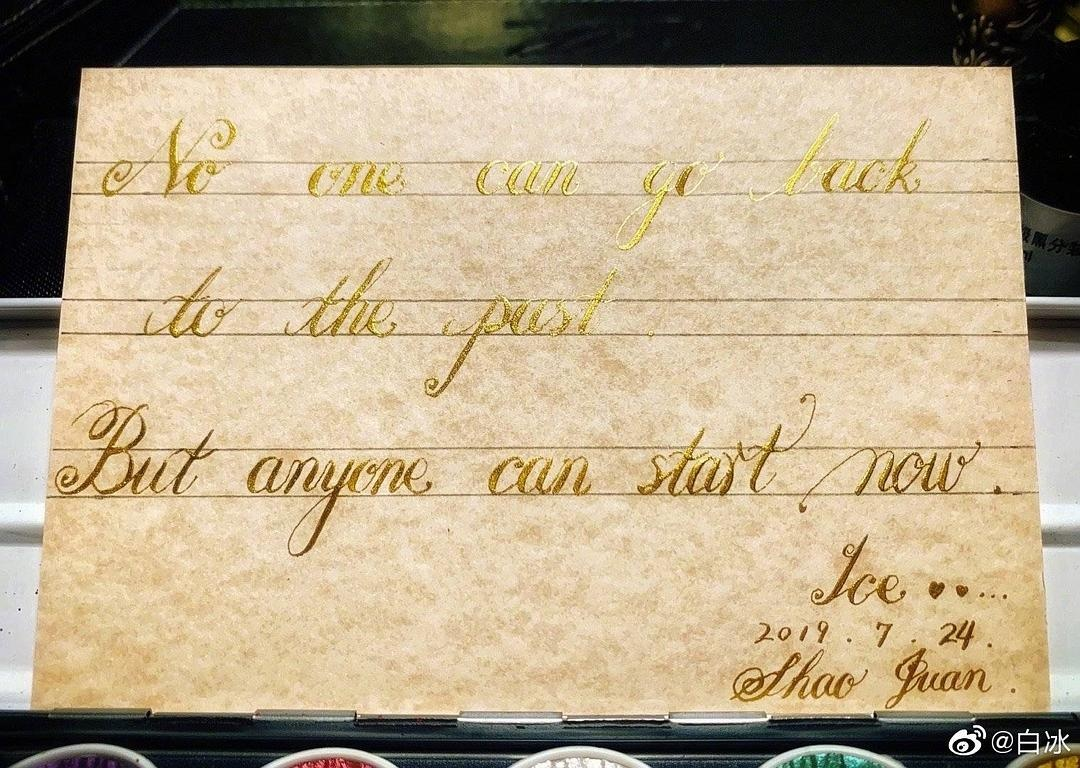 No one can go back
to the past.
But anyone can start now.
Ice ♥♥...
2019.7.24.
Shao Juan.
@白冰